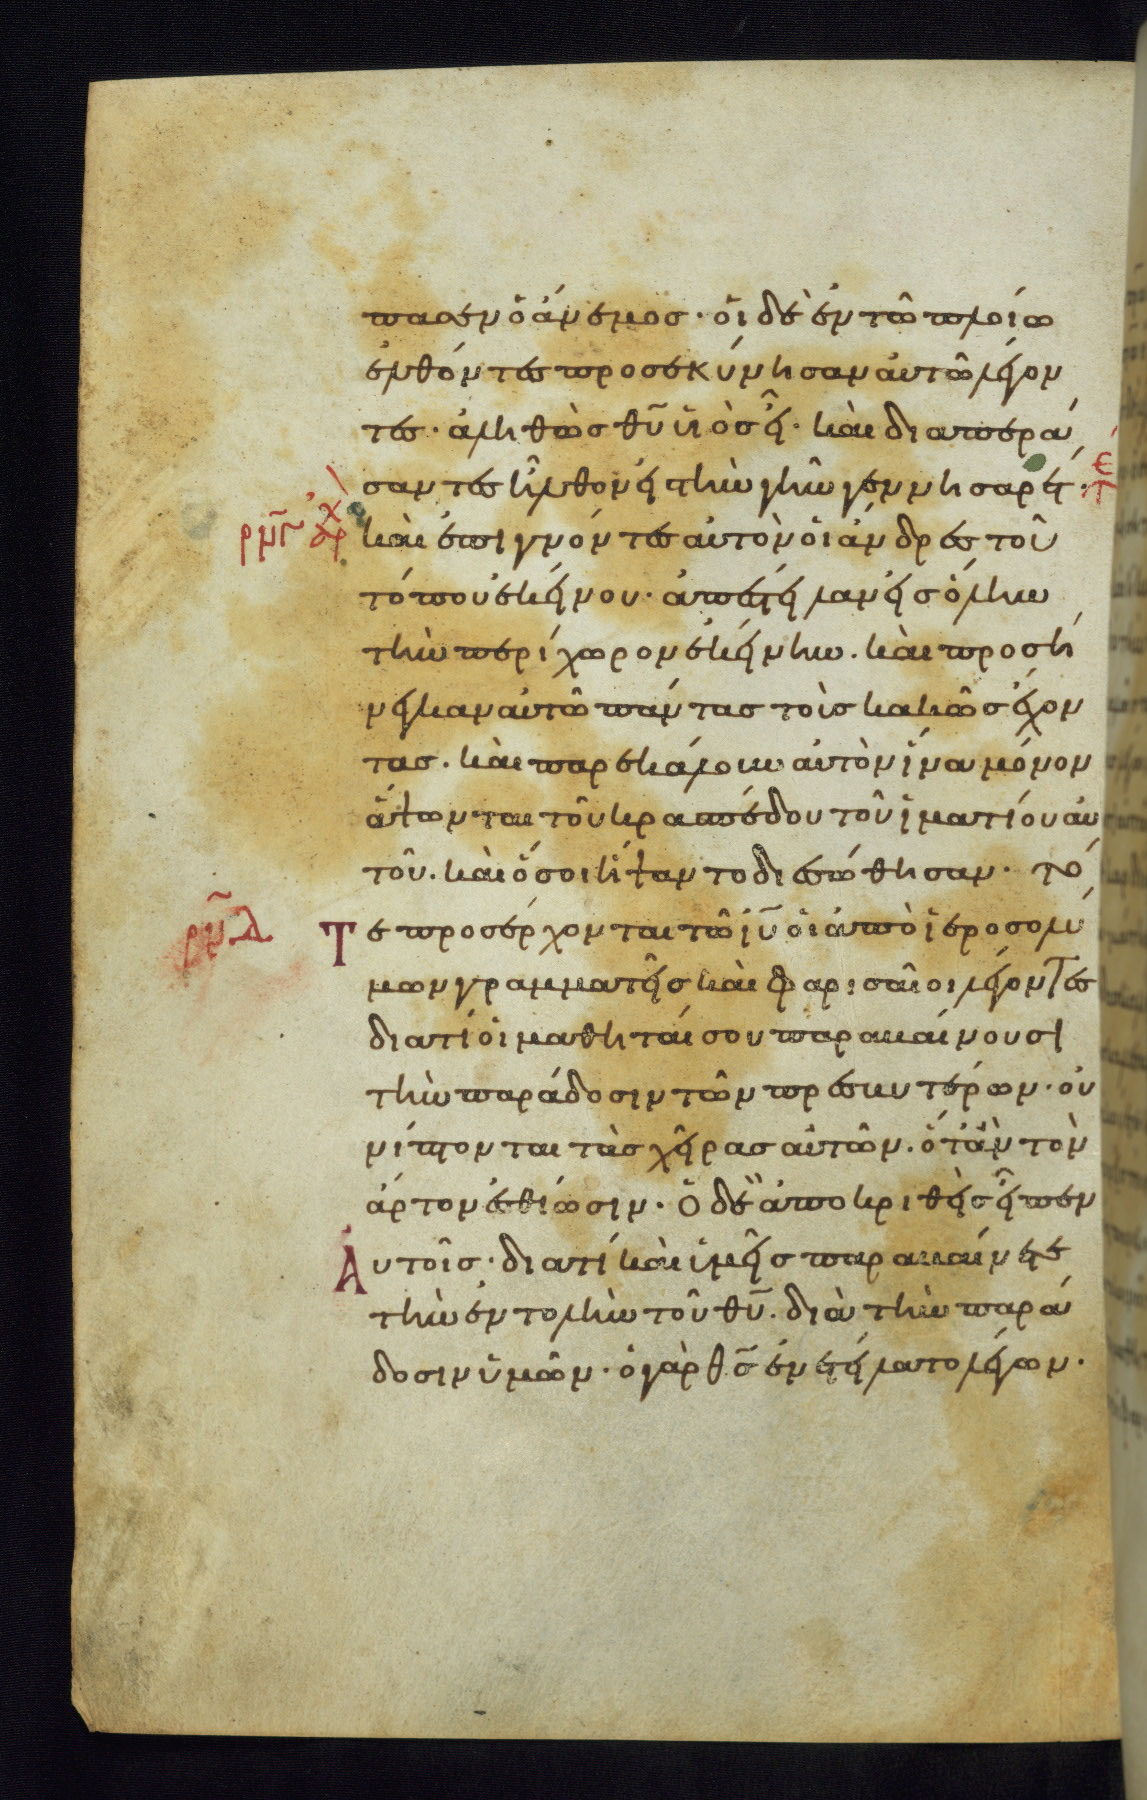 πασεν ὁ ἄνεμοσ · οἱ δὲ ἐν τῶ πλοίω
ἐλθόντες προσεκύνησαν αὐτῶ λέγον
τες · ἀληθῶσ θῡ υἱὸσ εἶ · καὶ διαπερά
σαντες ἦλθον εἰς τὴν γῆν γεννησαρέτ ·
ρμγ ἀρχ καὶ ἐπιγνόντες αὐτὸν οἱ ἄνδρες τοῦ
τόπου ἐκείνου · ἀπέστειλαν εἰσ ὅλην
τὴν περίχωρον ἐκείνην . καὶ προσή
νεγκαν αὐτῶ πάντας τοὺσ κακῶσ ἔχον
τασ . καὶ παρεκάλουν αὐτὸν ἵνα μόνον
ἅψωνται τοῦ κρασπέδου τοῦ ἱματίου αὐ
τοῦ . καὶ ὅσοι ἥψαντο διεσώθησαν · τό
ρμδ Τε προσέρχονται τῶ ιῡ οἱ ἀπὸ ἱεροσολύ
μων γραμματεῖσ καὶ φαρισαῖοι λέγοντες
διατί οἱ μαθηταί σου παραβαίνουσι
τὴν παράδοσιν τῶν πρεσβυτέρων · οὐ
νίπτονται τὰσ χεῖρασ αὐτῶν . ὅταν τὸν
ἄρτον ἐσθίωσιν · Ὁ δὲ ἀποκριθεὶσ εἶπεν
Αὐτοῖσ · διατί καὶ ὑμεῖσ παραβαίνετε
τὴν ἐντολὴν τοῦ θῡ . διὰ τὴν παρά
δοσιν ὑμῶν · ὁ γὰρ θσ̄ ἐνετείλατο λέγων ·